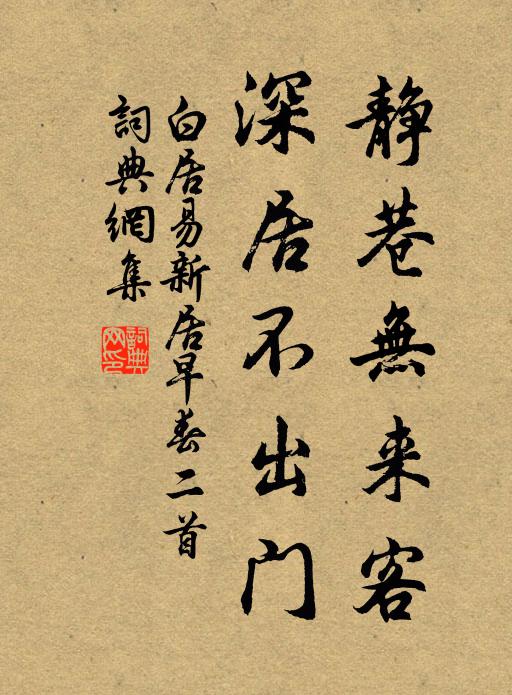 静巷無来客
深居不出门
白居易新居早春二首
詞典網集
詞典网印